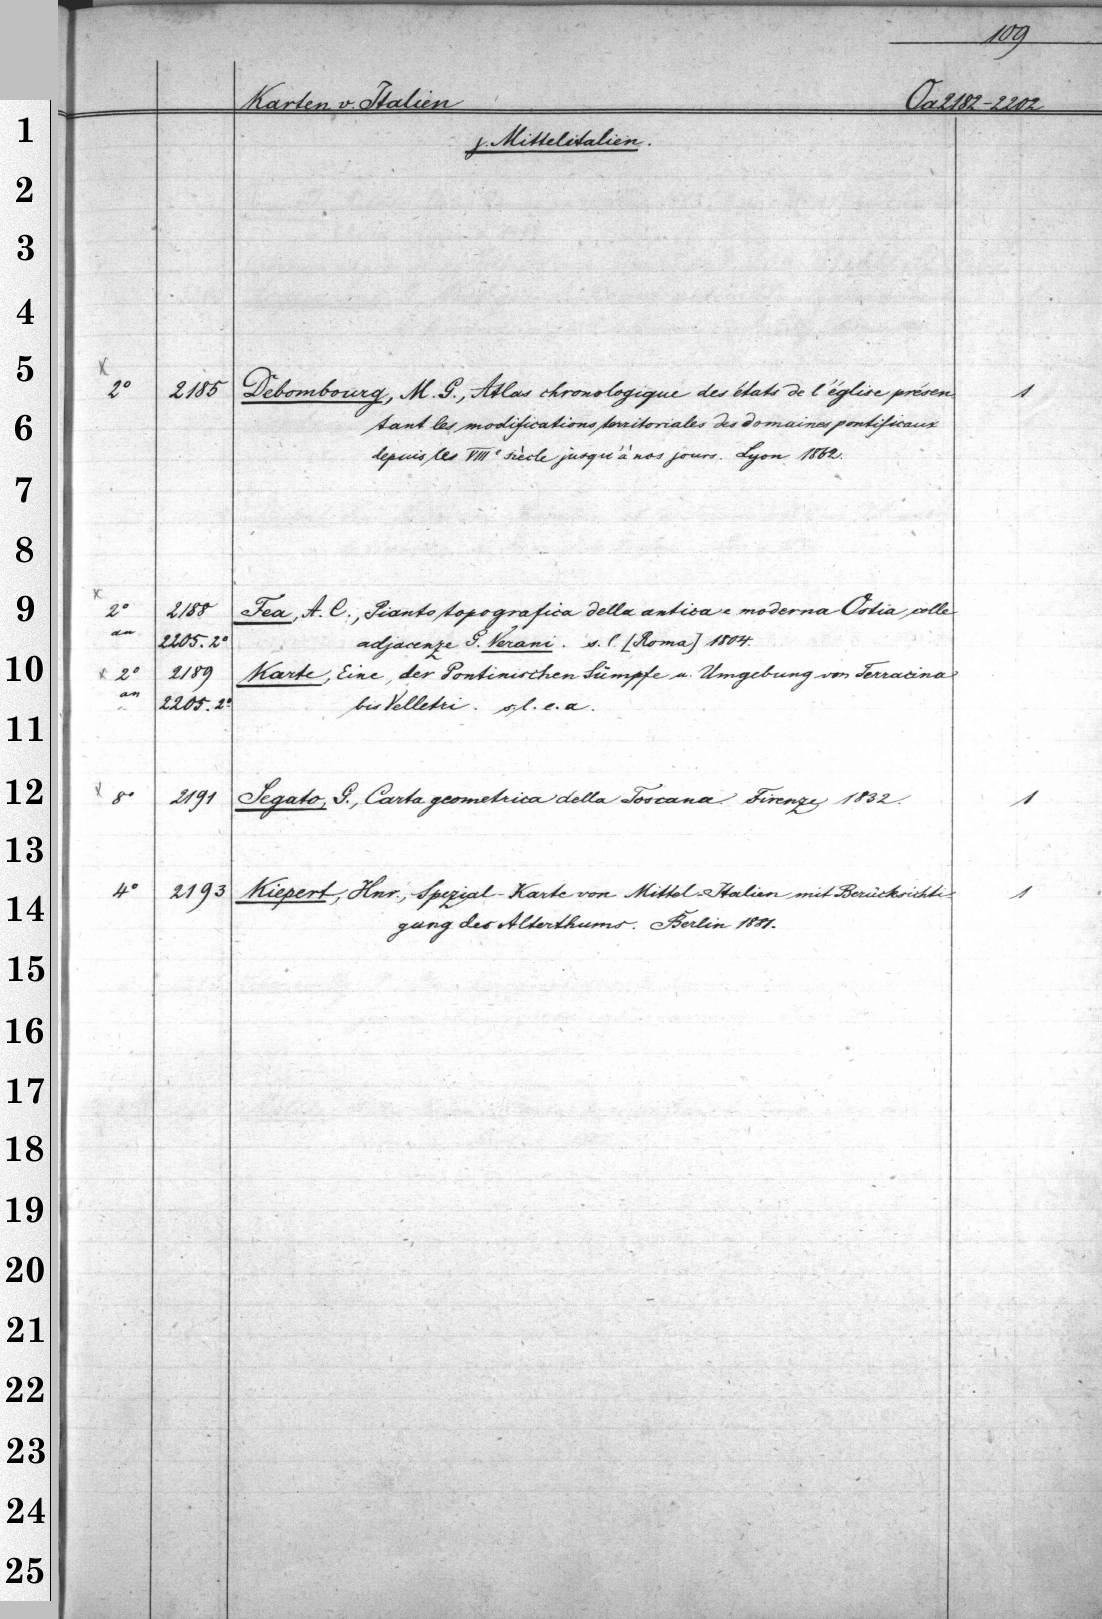 109
Karten v. Italien Oa 2182-2202
j. Mittelitalien.
1
2
3
4
5
x
2° 2185 Debombourg, M. G., Atlas chronologique des états de l'église présen- 1
6
tant les modifications territoriales des domaines pontificaux
depuis les VIII e siècle jusqu'à nos jours. Lyon 1862.
7
8
9
x
2° 2188 Fea, A. C., Pianto topografica della antica e moderna Ostia colle
an 2205. 2° adjacenze G. Verani. s. l. [Roma] 1804.
10
x 2° 2189 Karte, Eine, der Pontinischen Sümpfe u. Umgebung von Terracina
an 2205. 2° bis Velletri. s. l. e. a.
11
12
x 8° 2191 Segato, G., Carta geometrica della Toscana. Firenze 1832. 1
13
4° 2193 Kiepert, Hnr., Spezial-Karte von Mittel-Italien mit Berücksichti- 1
14
gung des Alterthums. Berlin 1881.
15
16
17
18
19
20
21
22
23
24
25